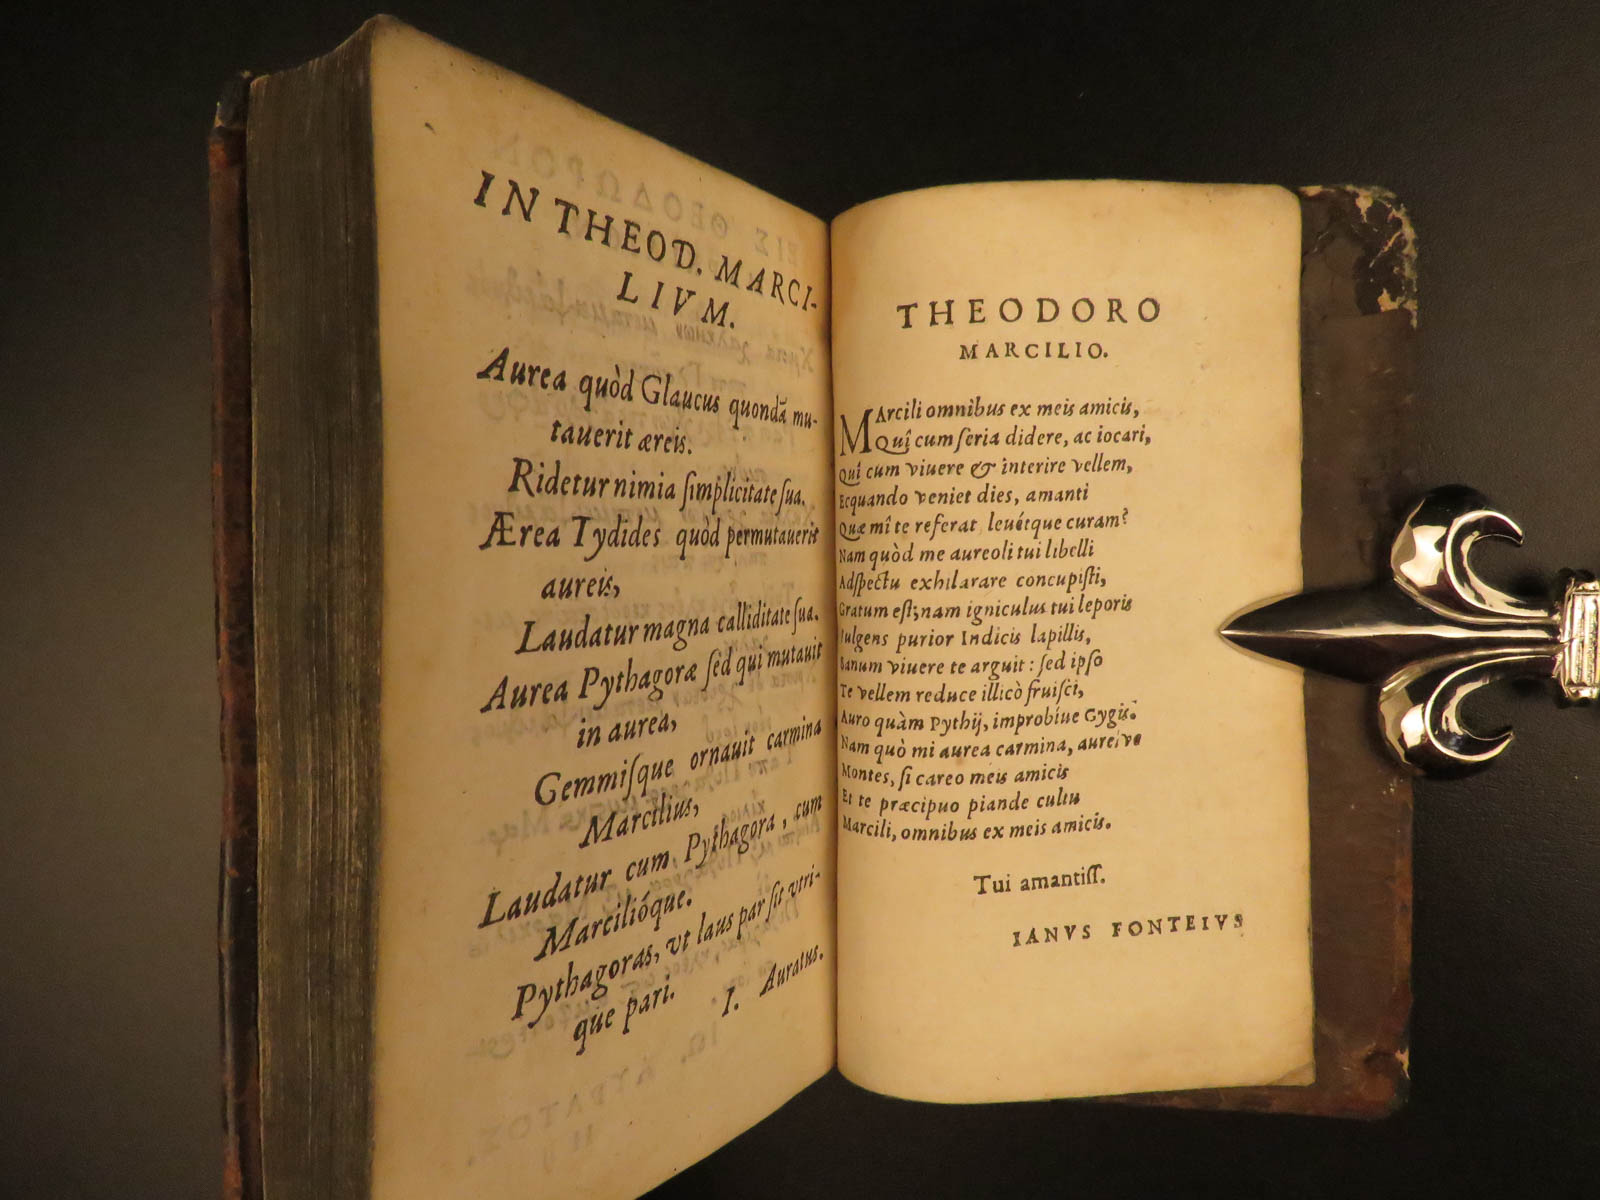 IN THEOD. MARCI-
LIVM.
Aurea quòd Glaucus quondã mu-
tauerit æreis.
Ridetur nimia ſimplicitate ſua.
Ærea Tydides quòd permutauerit
aureis,
Laudatur magna calliditate ſua.
Aurea Pythagoræ ſed qui mutauit
in aurea,
Gemmiſque ornauit carmina
Marcilius,
Laudatur cum Pythagora, cum
Marcilióque.
Pythagoras, vt laus par ſit vtri-
que pari.
I. Auratus.
THEODORO
MARCILIO.
MArcili omnibus ex meis amicis,
Quî cum ſeria didere, ac iocari,
Quî cum viuere & interire vellem,
Ecquando veniet dies, amanti
Quæ mî te referat leuétque curam?
Nam quòd me aureoli tui libelli
Adſpectu exhilarare concupiſti,
Gratum eſt; nam igniculus tui leporis
Fulgens purior Indicis lapillis,
Sanum viuere te arguit: ſed ipſo
Te vellem reduce illicò fruiſci,
Auro quàm Pythij, improbíue Gygis.
Nam quò mi aurea carmina, aureíve
Montes, ſi careo meis amicis
Et te præcipuo piande cultu
Marcili, omnibus ex meis amicis.
Tui amantiſſ.
IANVS FONTEIVS